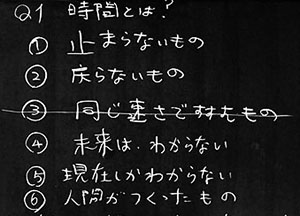 Q1 時間とは?
① 止まらないもの
② 戻らないもの
③ 同じ速さですすむもの
④ 未来は、わからない
⑤ 現在しかわからない
⑥ 人間がつくったもの